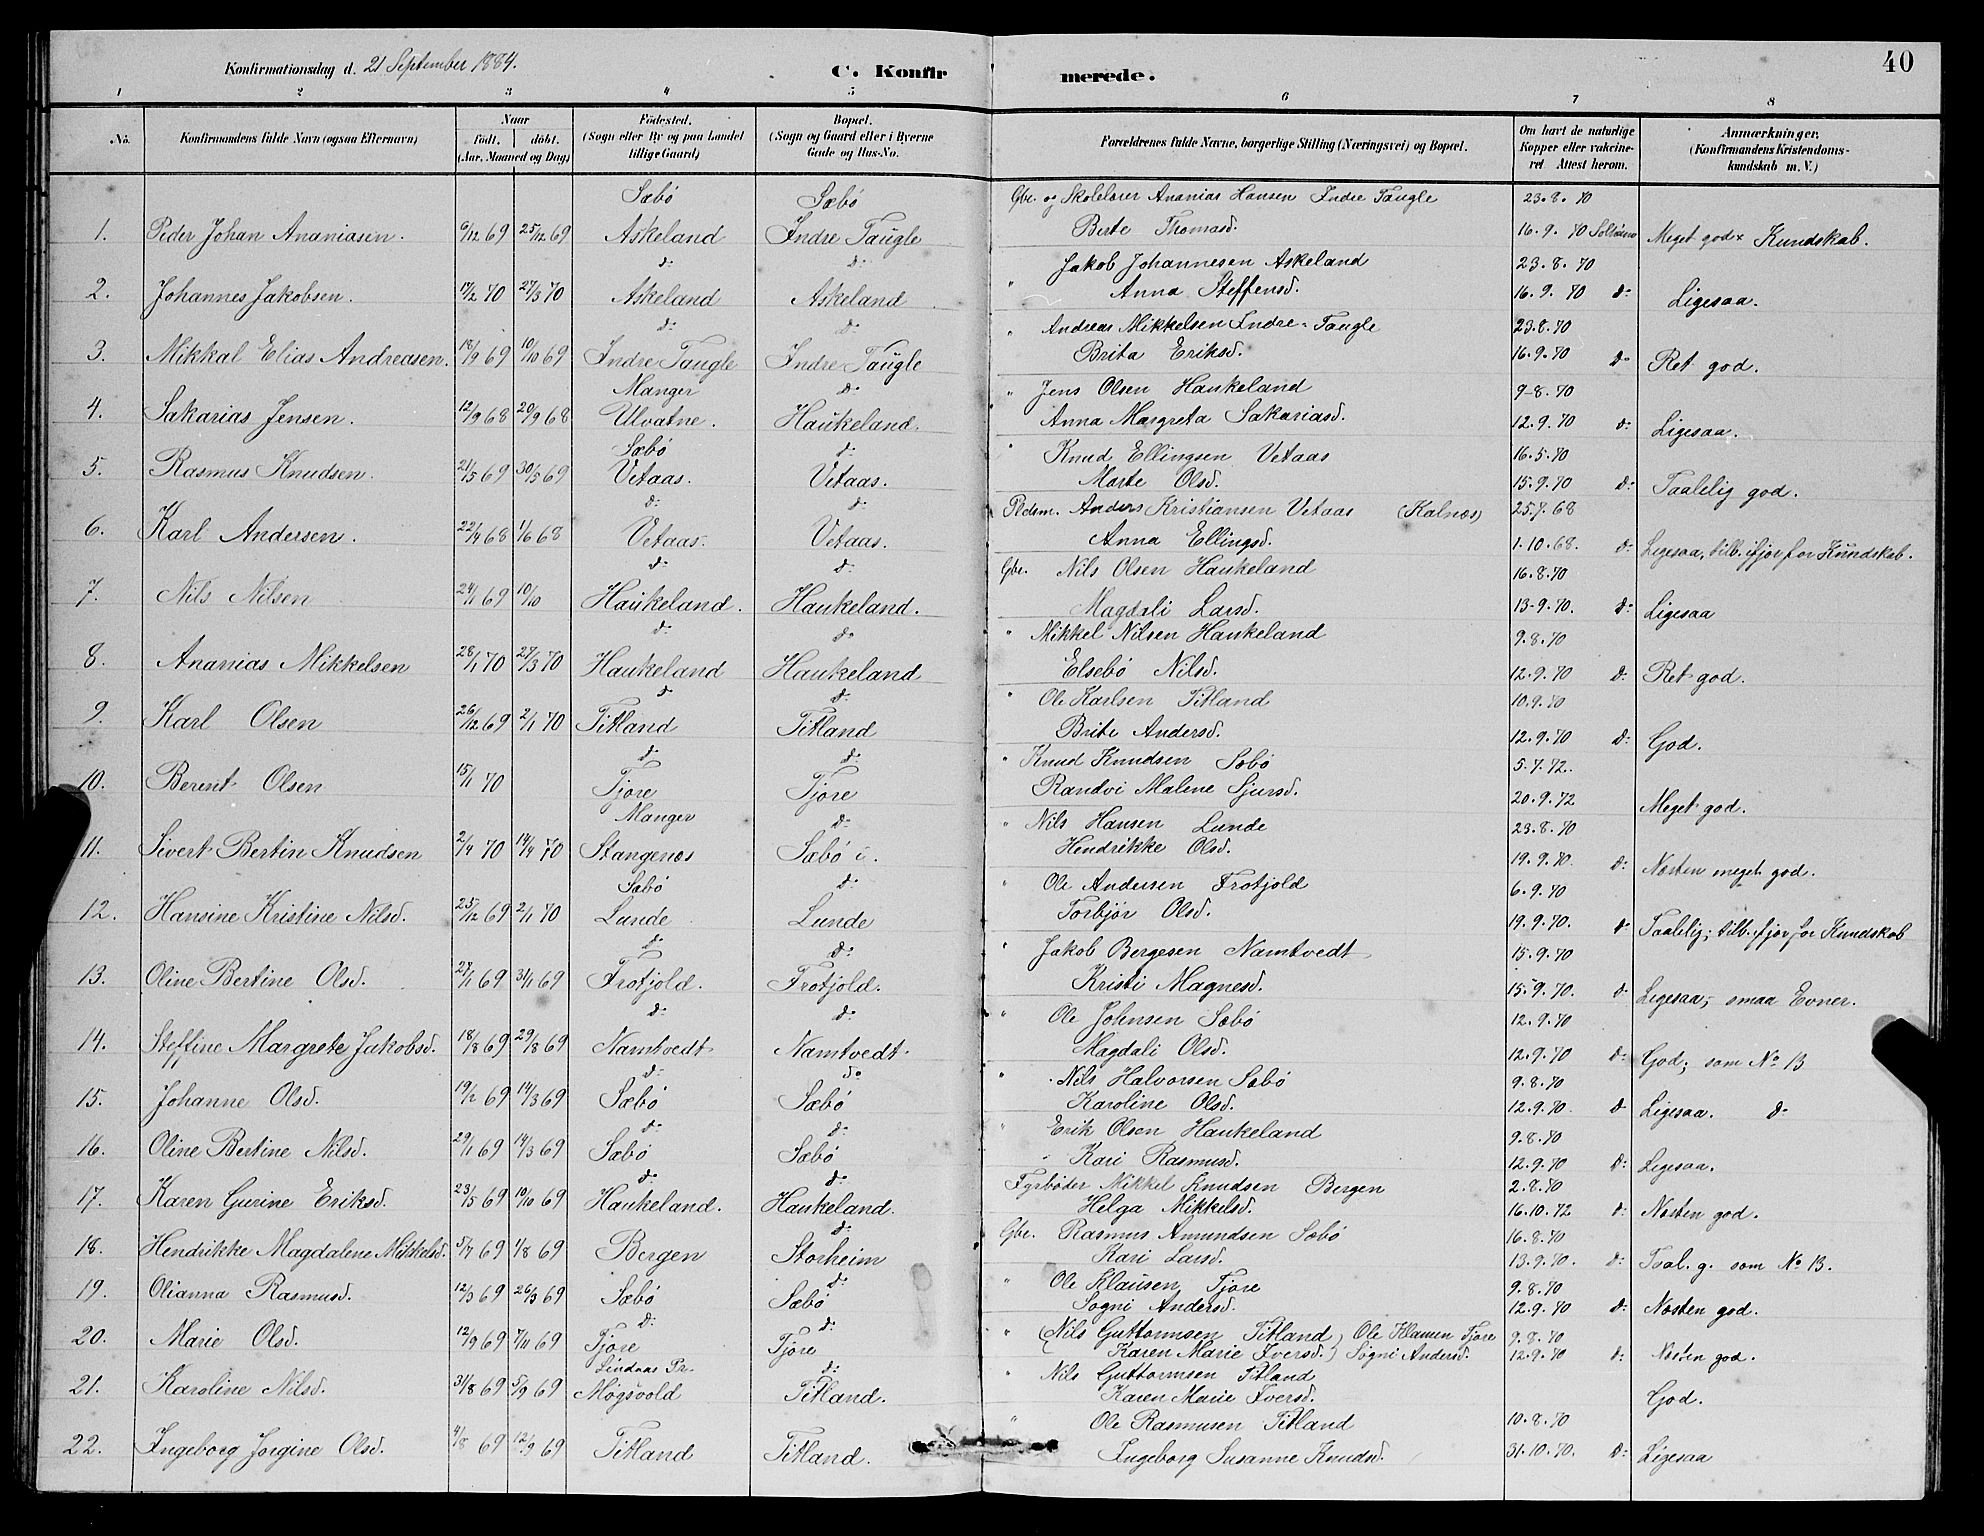 Konfirmationsdag d. 21 September 1884.
C. Konfirmerede.
40
1 2 3 4 5 6 7 8
No.
Konfirmandens fulde Navn (ogsaa Efternavn)
Naar
födt. döbt.
(Aar, Maaned og Dag)
Födested.
(Sogn eller By og paa Landet tillige Gaard)
Bopæl.
(Sogn og Gaard eller i Byerne Gade og Hus-No.
Forældrenes fulde Navne, borgerlige Stilling (Næringsvei) og Bopæl.
Om havt de naturlige Kopper eller vakcineret Attest herom.
Anmærkninger.
(Konfirmandens Kristendomskundskab m. V.)
Sæbö Sæbö Gbr. og Skolelærer Ananias Hansen Indre Taugle 23.8.70
1. Peder Johan Ananiasen. 6/12 69 25/12 69 Askeland Indre Taugle Berte Thomasd. 16.9.70 Meget god Kundskab.
d: d: Jakob Johannesen Askeland 23.8.70
2. Johannes Jakobsen. 17/2 70 27/3 70 Askeland Askeland " Anna Steffensd. 16.9.70 d: Ligesaa.
d: d: " Andreas Mikkelsen Indre-Taugle 23.8.70
3. Mikkal Elias Andreasen. 18/9 69 10/10 69 Indre Taugle Indre Taugle Brita Eriksd. 16.9.70 d: Ret god.
Manger d: " Jens Olsen Haukeland 9-8.70
4. Sakarias Jensen. 12/9 68 20/9 68 Ulvatne. Haukeland. Anna Margreta Sakariasd. 12.9.70 d: Ligesaa.
Sæbö d: " Knud Ellingsen Vetaas 16.5.70
5. Rasmus Knudsen. 21/5 69 30/5 69 Vetaas. Vetaas. Marte Olsd. 15.9.70 d: Taalelig god.
d: d: Pldsm. Anders Kristiansen Vetaas (Kalnæs) 25.7.68
6. Karl Andersen. 22/4 68 1/6 68 Vetaas. Vetaas. Anna Ellingsd. 1.10.68. d: Ligesaa, tilb. ifjor for Kundskab.
d: d: Gbr. Nils Olsen Haukeland 16.8.70
7. Nils Nilsen 24/11 69 10/10 Haukeland. Haukeland. Magdali Larsd. 13-9.70. d: Ligesaa
d: d: " Mikkel Nilsen Haukeland 9.8.70
8. Ananias Mikkelsen 28/1 70 27/3 70 Haukeland Haukeland Elsebö Nilsd. 12.9.70 d: Ret god.
d: d: " Ole Karlsen Titland 10.9.70
9. Karl Olsen 26/12 69 2/1 70 Titland Titland Brite Andersd. 12.9.70 d: God.
d: d: " Knud Knudsen Sæbö 5.7.72.
10. Berent Olsen 15/1 70 Tjore Tjore Randvi Malene Sjursd. 20.9.72 Meget god.
Manger d: " Nils Hansen Lunde 23.8.70
11. Sivert Bertin Knudsen 2/4 70 14/4 70 Stangenes Sæbö Hendrikke Olsd. 19.9.70. d: Næsten meget god.
Sæbö d: " Ole Andersen Frotjold 6.9.70
12. Hansine Kristine Nilsd. 25/12 69 2/1 70 Lunde Lunde Torbjør Olsd. 19.9.70. d: Taalelig; tilb. ifjor for Kundskab
d: d: " Jakob Bergesen Namtvedt 15.9.70
13. Oline Bertine Olsd. 27/1 69 31/1 69 Frotjold. Frotjold. Kristi Magnesd. 15.9.70. d: Ligesaa; smaa Evner.
d: d: " Ole Johnsen Sæbö 12.9.70
14. Steffine Margrete Jakobsd. 18/8 69 29/8 69 Namtvedt Namtvedt. Magdali Olsd. 12.9.70 d: God; som No 13
d: do " Nils Halvorsen Sæbö 9.8.70
15. Johanne Olsd. 19/2 69 14/3 69 Sæbö Sæbö Karoline Olsd. 12.9.70. d: Ligesaa. d:
d: d: " Erik Olsen Haukeland 9.8.70
16. Oline Bertine Nilsd. 29/1 69 14/3 69 Sæbö Sæbö Kari Rasmusd. 12.9.70 d: Ligesaa.
d: d: Fyrböder Mikkel Knudsen Bergen 2.8.70
17. Karen Gurine Eriksd. 23/5 69 10/10 69 Haukeland. Haukeland. Helga Mikkelsd. 16.10.72 d: Næsten god.
d: Gbr. Rasmus Amundsen Sæbö 16.8.70
18. Hendrikke Magdalene Mikkelsd. 5/7 69 1/8 69 Bergen Storheim Kari Larsd. 13.9.70. d: Taal. g. som No 13.
d: " Ole Klausen Tjore 9.8.70
19. Olianna Rasmusd. 12/3 69 26/3 69 Sæbö Sæbö Sogni Andersd. 12.9.70 d: Næsten god.
d: d: " (Nils Guttormsen Titland) Ole Klausen Tjore 9.8.70
20. Marie Olsd. 12/9 69 7/11 69 Tjore Tjore (Karen Marie Iversd.) Sogni Andersd. 12.9.70 d: Næsten god.
Lindaas Pr. d: " Nils Guttormsen Titland
21. Karoline Nilsd. 31/8 69 5/9 69 Møgsvold Titland. Karen Marie Iversd. God.
" Ole Rasmusen Titland 10.8.70
22. Ingeborg Jorgine Olsd. 4/8 69 12/9 69 Titland Titland. Ingeborg Susanne Knudsd. 31.10.70. d: Ligesaa